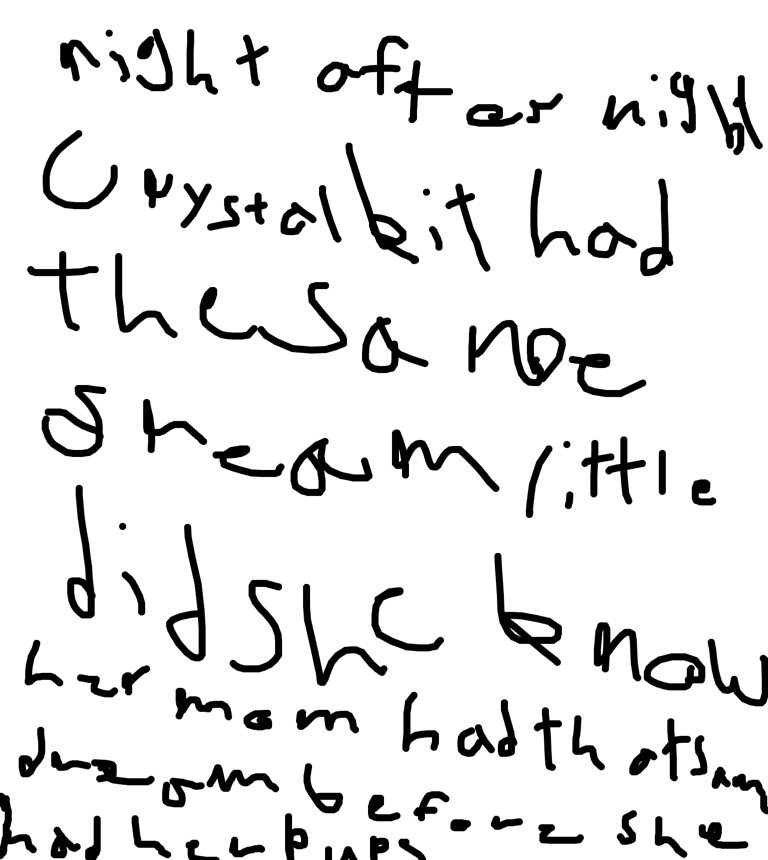 night after night
Crystalkit had
the same
dream little
did she know
her mom had that sam
dream before she
had her